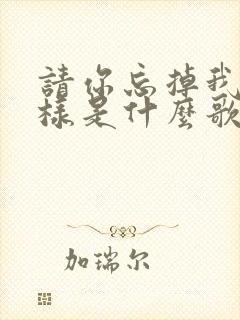 請你忘掉我
樣是什麼歌
加瑞尔